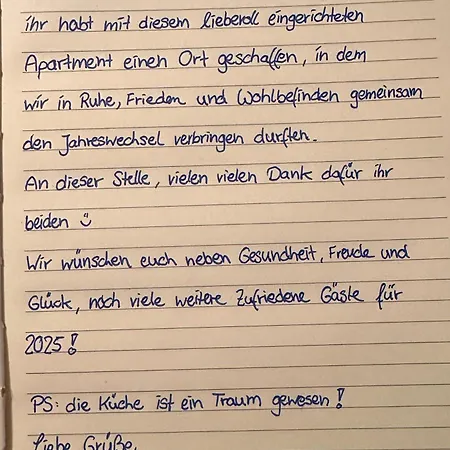 ihr habt mit diesem liebevoll eingerichteten
Apartment einen Ort geschaffen, in dem
wir in Ruhe, Frieden und Wohlbefinden gemeinsam
den Jahreswechsel verbringen durften.
An dieser Stelle, vielen vielen Dank dafür ihr
beiden ☺
Wir wünschen euch neben Gesundheit, Freude und
Glück, noch viele weitere Zufriedene Gäste für
2025!
PS: die Küche ist ein Traum gewesen!
Liebe Grüße,